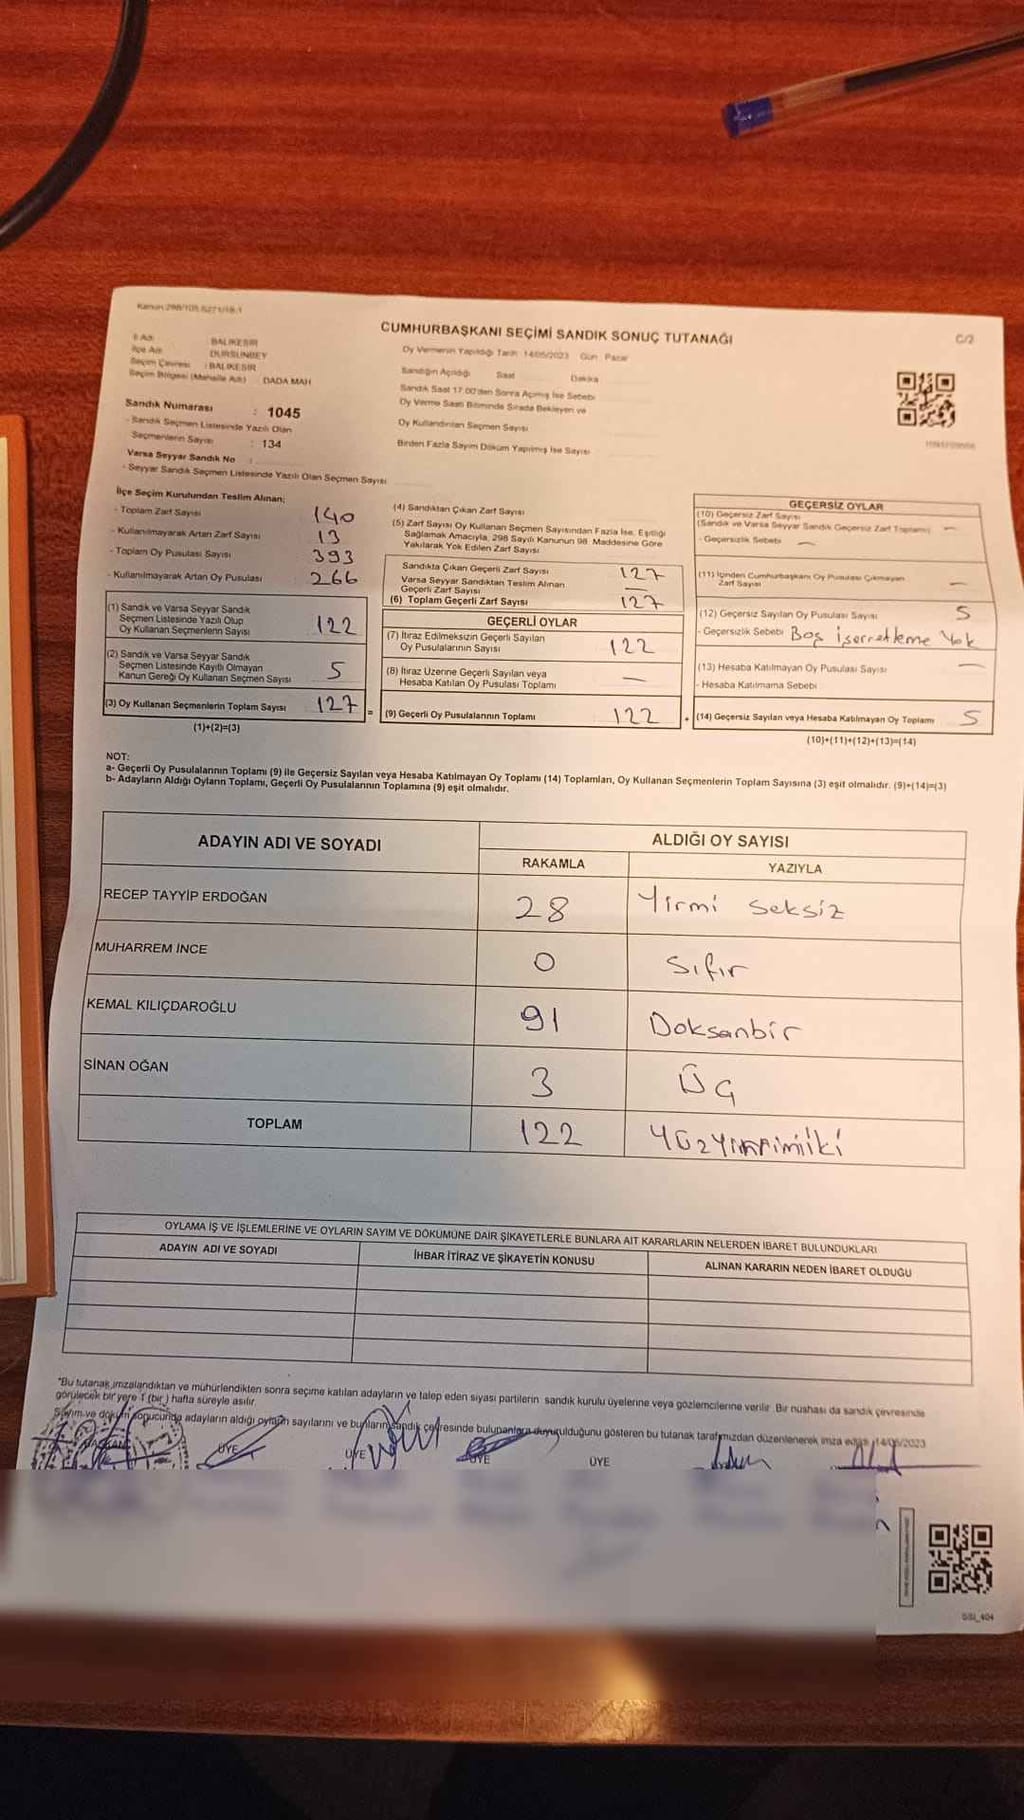 Kanun:298/105.6271/18-1
CUMHURBAŞKANI SEÇİMİ SANDIK SONUÇ TUTANAĞI
C/2
İl Adı : BALIKESİR
İlçe Adı : DURSUNBEY
Seçim Çevresi : BALIKESİR
Seçim Bölgesi (Mahalle Adı) : DADA MAH
Oy Vermenin Yapıldığı Tarih 14/05/2023 Gün Pazar
Sandığın Açıldığı Saat Dakika
Sandık Saat 17.00'den Sonra Açılmış İse Sebebi
Oy Verme Saati Bitiminde Sırada Bekleyen ve
Oy Kullandırılan Seçmen Sayısı
Birden Fazla Sayım Döküm Yapılmış İse Sayısı
Sandık Numarası : 1045
- Sandık Seçmen Listesinde Yazılı Olan
Seçmenlerin Sayısı : 134
Varsa Seyyar Sandık No :
- Seyyar Sandık Seçmen Listesinde Yazılı Olan Seçmen Sayısı
İlçe Seçim Kurulundan Teslim Alınan;
- Toplam Zarf Sayısı 140
- Kullanılmayarak Artan Zarf Sayısı 13
- Toplam Oy Pusulası Sayısı 393
- Kullanılmayarak Artan Oy Pusulası 266
(1) Sandık ve Varsa Seyyar Sandık
Seçmen Listesinde Yazılı Olup
Oy Kullanan Seçmenlerin Sayısı 122
(2) Sandık ve Varsa Seyyar Sandık
Seçmen Listesinde Kayıtlı Olmayan
Kanun Gereği Oy Kullanan Seçmen Sayısı 5
(3) Oy Kullanan Seçmenlerin Toplam Sayısı 127 =
(1)+(2)=(3)
(4) Sandıktan Çıkan Zarf Sayısı
(5) Zarf Sayısı Oy Kullanan Seçmen Sayısından Fazla İse, Eşitliği
Sağlamak Amacıyla, 298 Sayılı Kanunun 98. Maddesine Göre
Yakılarak Yok Edilen Zarf Sayısı
Sandıkta Çıkan Geçerli Zarf Sayısı 127
Varsa Seyyar Sandıktan Teslim Alınan
Geçerli Zarf Sayısı —
(6) Toplam Geçerli Zarf Sayısı 127
GEÇERLİ OYLAR
(7) İtiraz Edilmeksizin Geçerli Sayılan
Oy Pusulalarının Sayısı 122
(8) İtiraz Üzerine Geçerli Sayılan veya
Hesaba Katılan Oy Pusulası Toplamı —
(9) Geçerli Oy Pusulalarının Toplamı 122 +
GEÇERSİZ OYLAR
(10) Geçersiz Zarf Sayısı
(Sandık ve Varsa Seyyar Sandık Geçersiz Zarf Toplamı) —
- Geçersizlik Sebebi —
(11) İçinden Cumhurbaşkanı Oy Pusulası Çıkmayan
Zarf Sayısı —
(12) Geçersiz Sayılan Oy Pusulası Sayısı 5
- Geçersizlik Sebebi Boş işerretleme Yok
(13) Hesaba Katılmayan Oy Pusulası Sayısı —
- Hesaba Katılmama Sebebi
(14) Geçersiz Sayılan veya Hesaba Katılmayan Oy Toplamı 5
(10)+(11)+(12)+(13)=(14)
NOT:
a- Geçerli Oy Pusulalarının Toplamı (9) ile Geçersiz Sayılan veya Hesaba Katılmayan Oy Toplamı (14) Toplamları, Oy Kullanan Seçmenlerin Toplam Sayısına (3) eşit olmalıdır. (9)+(14)=(3)
b- Adayların Aldığı Oyların Toplamı, Geçerli Oy Pusulalarının Toplamına (9) eşit olmalıdır.
ADAYIN ADI VE SOYADI
ALDIĞI OY SAYISI
RAKAMLA YAZIYLA
RECEP TAYYİP ERDOĞAN 28 Yirmi seksiz
MUHARREM İNCE 0 Sıfır
KEMAL KILIÇDAROĞLU 91 Doksanbir
SİNAN OĞAN 3 ÜÇ
TOPLAM 122 YÜzYirmiiki
OYLAMA İŞ VE İŞLEMLERİNE VE OYLARIN SAYIM VE DÖKÜMÜNE DAİR ŞİKAYETLERLE BUNLARA AİT KARARLARIN NELERDEN İBARET BULUNDUKLARI
ADAYIN ADI VE SOYADI İHBAR İTİRAZ VE ŞİKAYETİN KONUSU ALINAN KARARIN NEDEN İBARET OLDUĞU
"Bu tutanak imzalandıktan ve mühürlendikten sonra seçime katılan adayların ve talep eden siyasi partilerin sandık kurulu üyelerine veya gözlemcilerine verilir. Bir nüshası da sandık çevresinde
görülecek bir yere 1 (bir) hafta süreyle asılır.
Sayım ve döküm sonucunda adayların aldığı oyların sayılarını ve bunların sandık çevresinde bulunanlara duyurulduğunu gösteren bu tutanak tarafımızdan düzenlenerek imza edildi 14/05/2023
BAŞKAN ÜYE ÜYE ÜYE ÜYE
SSI_404